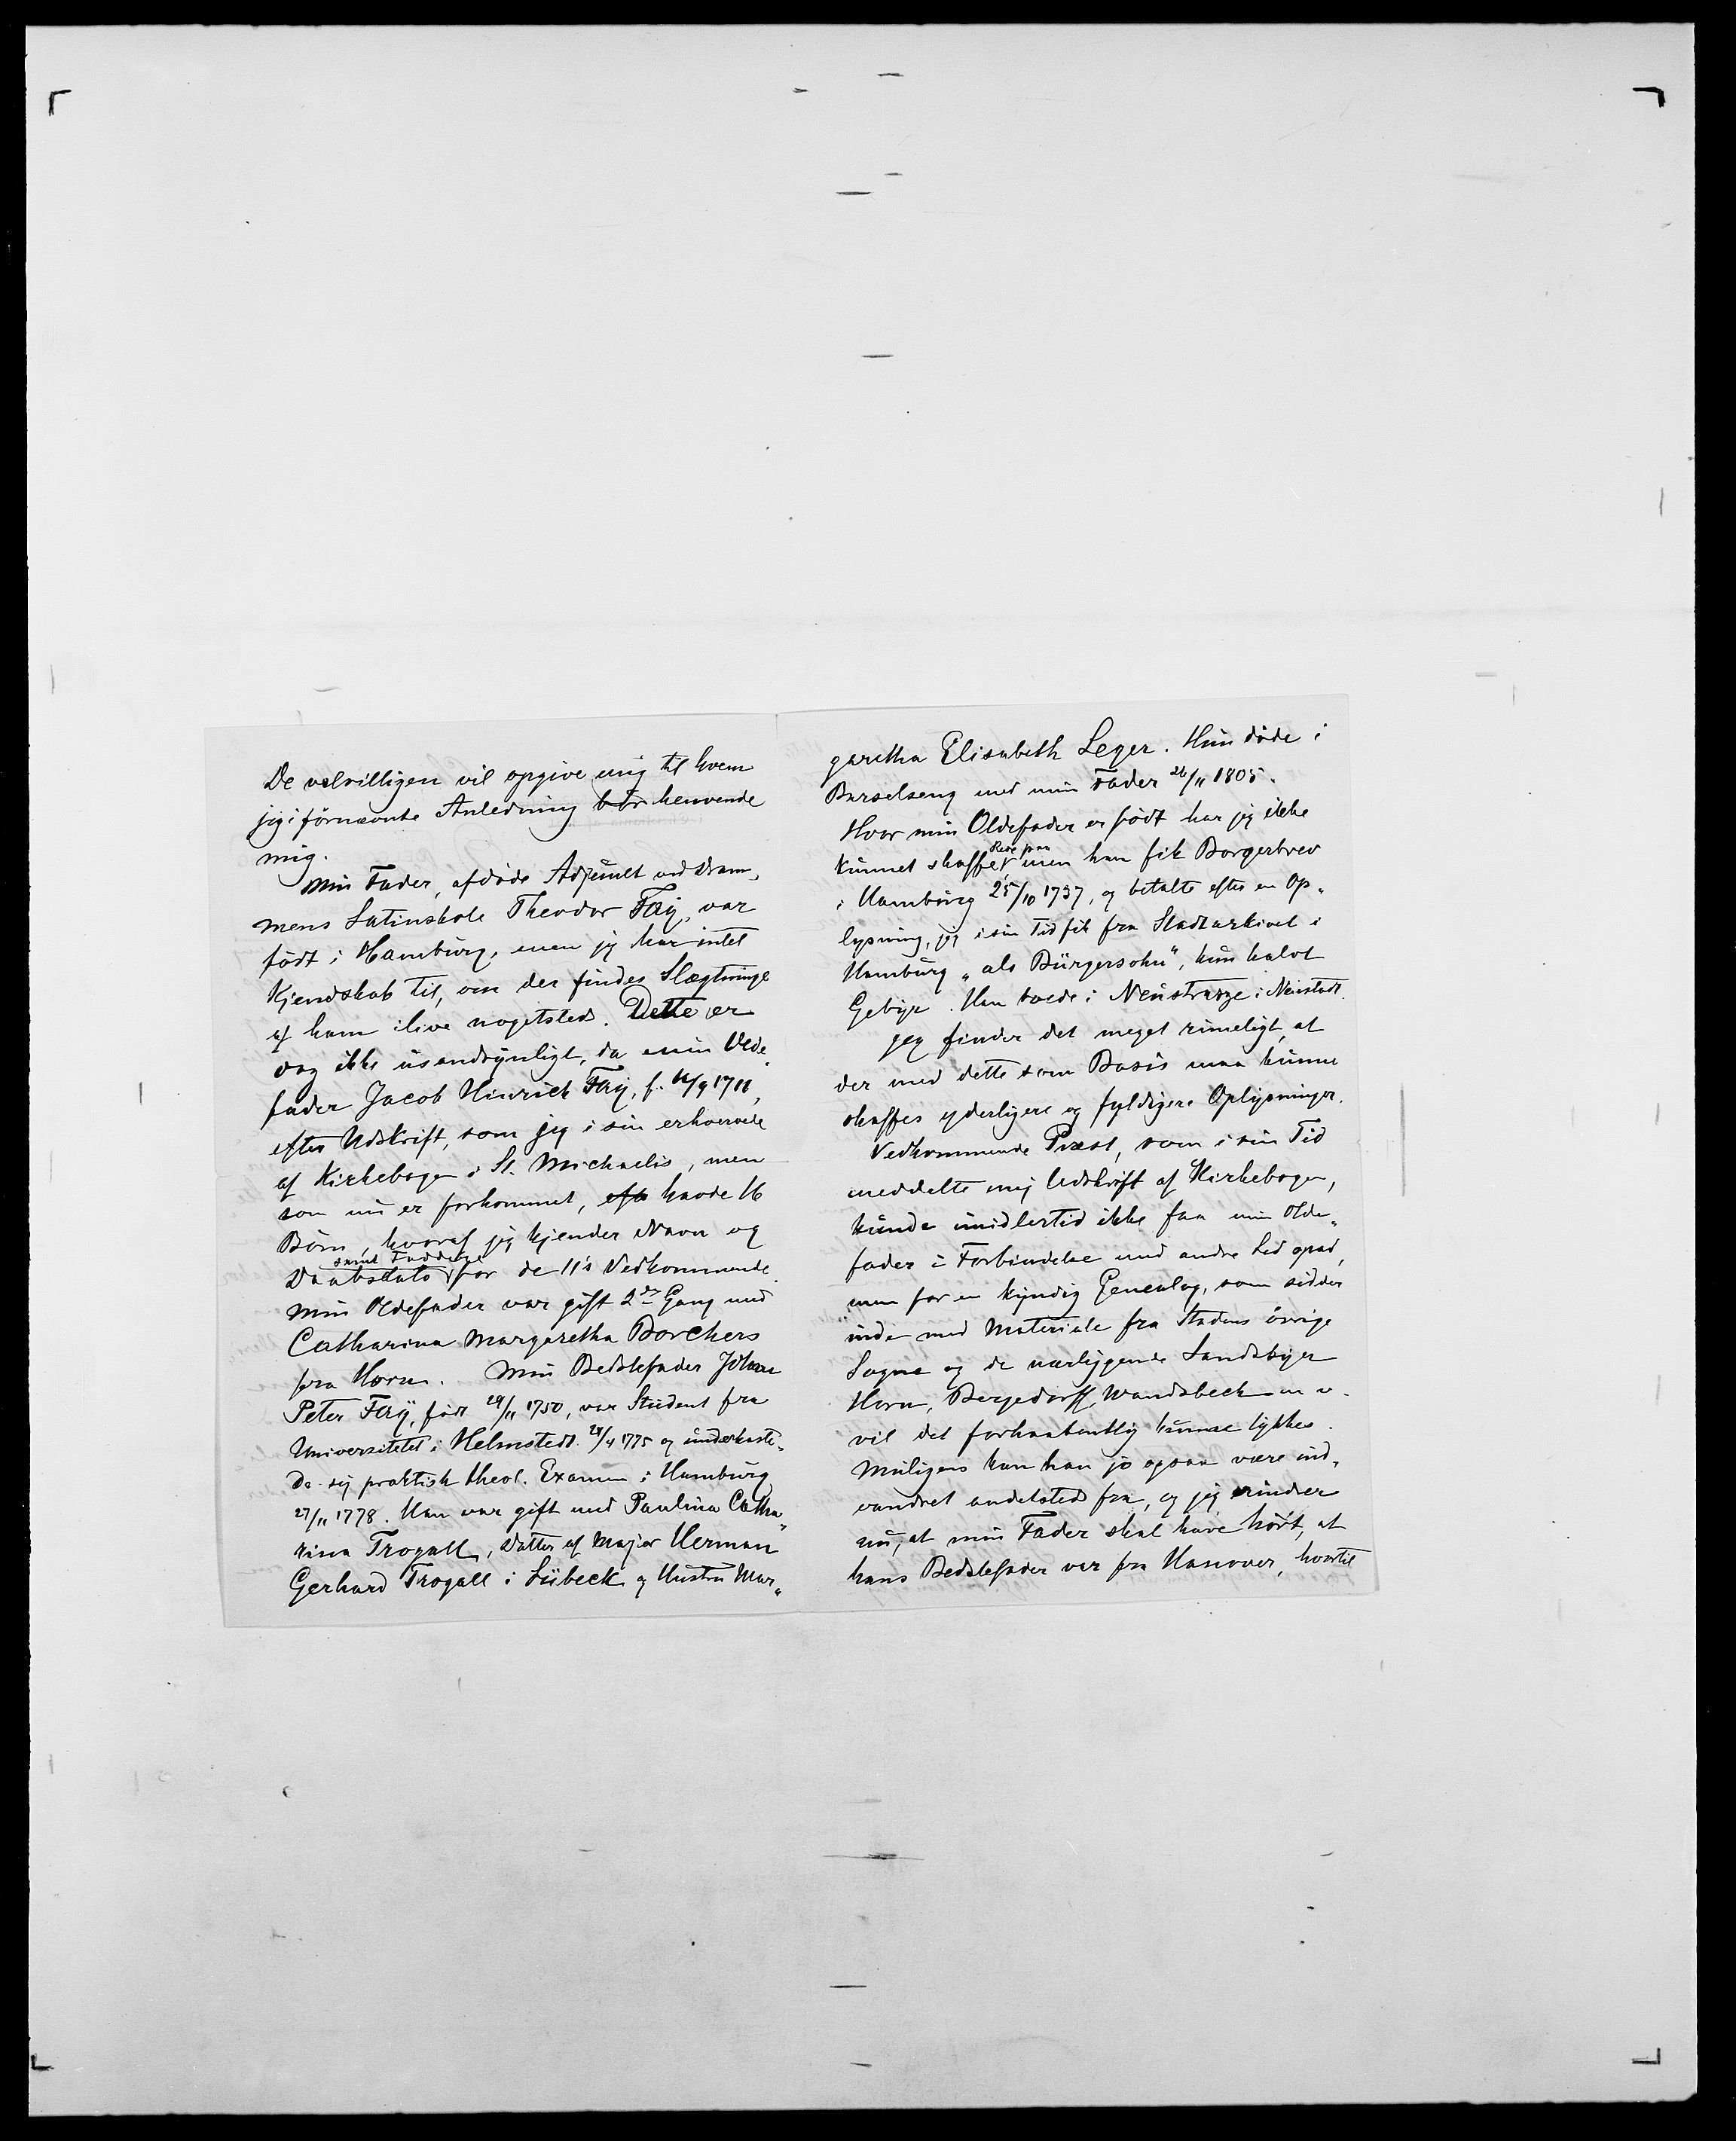 De velvilligen vil opgive mig til hvem
jeg i förnævnte Anledning bör henvende
mig.
Min Fader, afdöde Adjunkt ved Dram„
mens Latinskole Theodor Faÿ, var
födt i Hamburg, men jeg har intet
Kjendskab til, om der findes Slægtninge
af ham ilive nogetsteds. Dette er
dog ikke usandsynligt, da min Olde„
fader Jacob Hinrich Faÿ, f. 12/9 1711,
efter Udskrift, som jeg i sin erhvervede
af Kirkebogen i St. Michaelis, men
som nu er forkommet, havde 16
Börn, hvoraf jeg kjender Navn og
samt Faddere
Daabsdato for de 11's Vedkommende.
Min Oldefader var gift 2den Gang med
Catharina Margaretha Borchers
fra Horn. Min Bedstefader Johan
Peter Faÿ, föd 29/11 1750, var Student fra
Universitetet i Helmstedt 28/4 1775 og underkaste„
de sig praktisk theol. Examen i Hamburg
27/11 1778. Han var gift med Paulina Catha„
rina Trogall, Datter af Major Herman
Gerhard Trogall i Lübeck og Hustru Mar„
garetha Elisabeth Leger. Hun döde i
Barselseng med min Fader 26/11 1805.
Hvor min Oldefader er födt har jeg ikke
Rede paa
kunnet skaffet, men han fik Borgerbrev
i Hamburg 25/10 1737, og betalte efter en Op„
lysning, jeg i sin Tid fik fra Stadtarkivet i
Hamburg „als Bürgersohn", kun halvt
Gebyr. Han boede i Neustrasze i Neustadt.
Jeg finder det meget rimeligt, at
der med dette som Basis maa kunne
skaffes yderligere og fyldigere Oplysninger.
Vedkommende Præst, som i sin Tid
meddelte mig Udskrift af Kirkebogen,
kunde imidlertid ikke faa min Olde„
fader i Forbindelse med andre Led opad,
men for en kyndig Genealog, som sidder
inde med Materiale fra Stadens övrige
Sogne og de nærliggende Landsbyer
Horn, Bergedorff, Wandsbeck m v.
vil det forhaabentlig kunne lykkes.
Muligens kan han jo ogsaa være ind„
vandret andetsteds fra, og jeg minder
nu, at min Fader skal have hört, at
hans Bedstefader var fra Hanover, hvortil